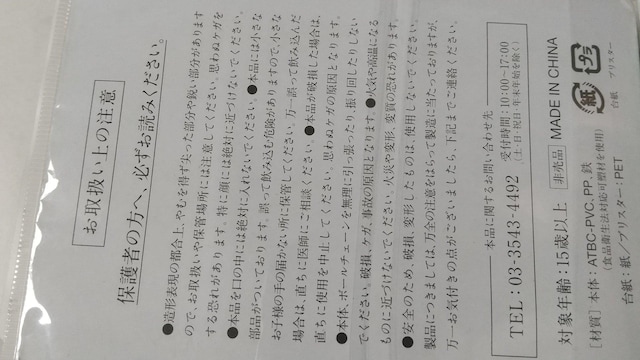 お取扱い上の注意
保護者の方へ、必ずお読みください。
●造形表現の都合上、やむを得ず尖った部分や鋭い部分があります
ので、お取扱いや保管場所には注意してください。思わぬケガを
する恐れがあります。特に顔には絶対に近づけないでください。
●本品を口の中には絶対に入れないでください。●本品には小さな
部品がついております。誤って飲み込む危険がありますので、小さな
お子様の手の届かない所に保管してください。万一誤って飲み込んだ
場合は、直ちに医師にご相談ください。●本品が破損した場合は、
直ちに使用を中止してください。思わぬケガの原因となります。
●本体、ボールチェーンを無理に引っ張ったり、振り回したりしない
でください。破損、ケガ、事故の原因となります。●火気や高温になる
ものに近づけないでください。火災や変形、変質の恐れがあります。
●安全のため、破損、変形したものは、使用しないでください。
製品につきましては、万全の注意をはらって製造に当たっておりますが、
万一お気付きの点がございましたら、下記までご連絡ください。
本品に関するお問い合わせ先
TEL:03-3543-4492 受付時間:10:00~17:00
(土・日・祝日・年末年始を除く)
対象年齢:15歳以上 非売品 MADE IN CHINA
[材質] 本体:ATBC-PVC, PP, 鉄
(食品衛生法対応可塑材を使用)
台紙:紙/ブリスター:PET
紙
プラ
台紙
ブリスター